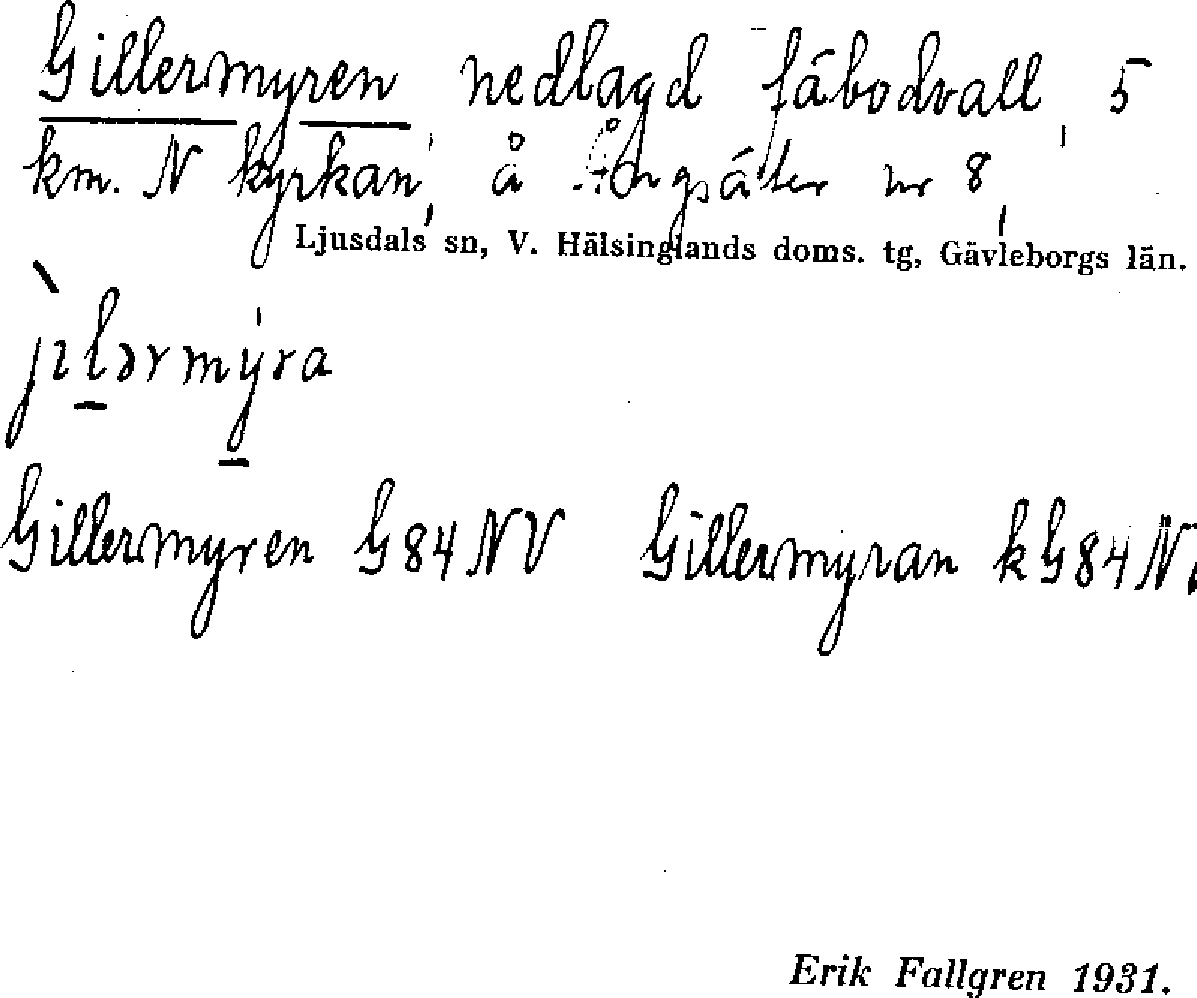 Gillermyren nedlagd fäbodvall, 5
km. N kyrkan, å Ångsäter nr 8,
Ljusdals sn, V. Hälsinglands doms. tg, Gävleborgs län.
jılərmýra
Gillermyren G84NV Gillermyran kG84N.
Erik Fallgren 1931.